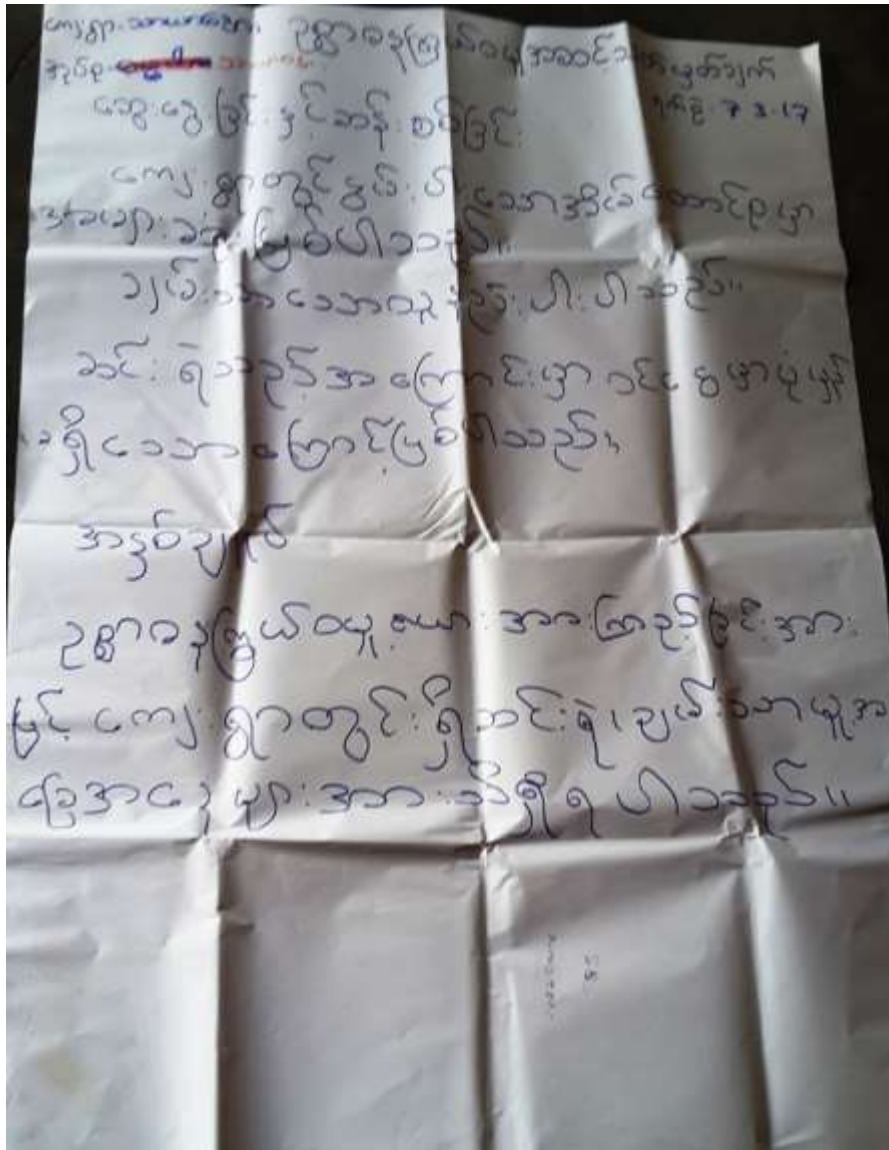 ကျေးရွာ-သာယာကုန်း
ဥစ္စာဓနကြွယ်ဝမှုအဆင့်သတ်မှတ်ချက်
အုပ်စု
ရက်စွဲ- 7 3 - 17
ဆွေးနွေးခြင်းနှင့်ဆန်းစစ်ခြင်း
ကျေးရွာတွင်နွမ်းပါးသောအိမ်ထောင်စုမှာ
အများဆုံးဖြစ်ပါသည်။
ချမ်းသာသောသူနည်းပါးပါသည်။
ဆင်းရဲသည့်အကြောင်းမှာဝင်ငွေမှာပုံမှန်
မရှိသောကြောင့်ဖြစ်ပါသည်။
အနှစ်ချုပ်
ဥစ္စာဓနကြွယ်ဝမှုဇယားအားကြည့်ခြင်းအား
ဖြင့်ကျေးရွာတွင်းရှိဆင်းရဲ၊ချမ်းသာမှုအ
ခြေအနေများအားသိရှိရပါသည်။